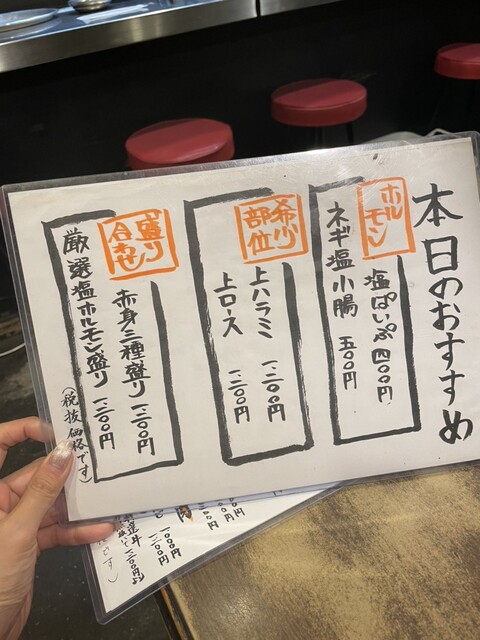 本日のおすすめ
ホルモン
塩ぱいぷ 四〇〇円
ネギ塩小腸 五〇〇円
希少部位
上ハラミ 一、二〇〇円
上ロース 一、二〇〇円
盛り合わせ
赤身三種盛り 一、二〇〇円
厳選塩ホルモン盛り 一、二〇〇円
(税抜価格です)